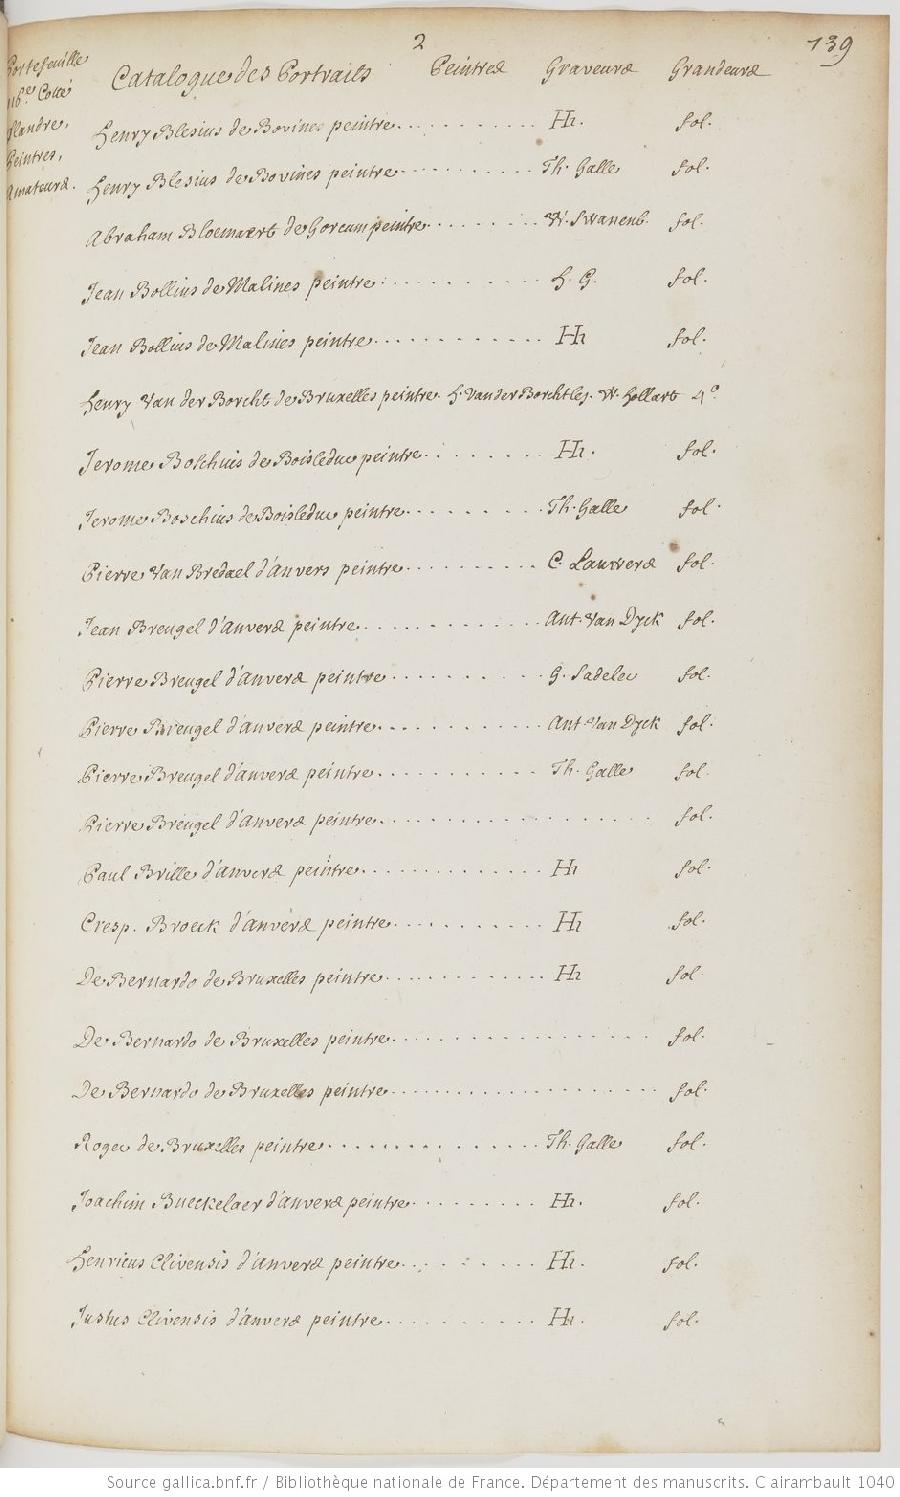 2
139
Portefeuille
116e Cotté
flandre,
Peintres,
Amateurs.
Catalogue des Portraits Peintres Graveurs Grandeurs
Henry Blesius de Bovines peintre.......... Hz. fol.
Henry Blesius de Bovines peintre.......... Th. Galle fol.
Abraham Bloemaert de Gorcum peintre........ W. Swanenb. fol.
Jean Bollius de Malines peintre.......... h. G. fol.
Jean Bollius de Malines peintre.......... Hz fol.
Henry Van der Borcht de Bruxelles peintre. h. Van der Borcht W. hollart 4o.
Jerome Boschius de Boisleduc peintre........ Hz. fol.
Jerome Boschius de Boisleduc peintre.......... Th. Galle fol.
Pierre Van Bredael d'anvers peintre.......... C. Lauvers fol.
Jean Breugel d'anvers peintre............ Ant. Van Dyck fol.
Pierre Breugel d'anvers peintre.......... G. Sadeler fol.
Pierre Breugel d'anvers peintre........... Ant. Van Dyck fol.
Pierre Breugel d'anvers peintre........... Th. Galle fol.
Pierre Breugel d'anvers peintre.................. fol.
Paul Brille d'anvers peintre............ Hz fol.
Cresp. Broeck d'anvers peintre........... Hz fol.
De Bernardo de Bruxelles peintre........... Hz fol.
De Bernardo de Bruxelles peintre.................. fol.
De Bernardo de Bruxelles peintre.................. fol.
Roger de Bruxelles peintre.............. Th. Galle fol.
Joachim Bueckelaer d'anvers peintre......... Hz. fol.
Henricus Clivensis d'anvers peintre.......... Hz. fol.
Justus Clivensis d'anvers peintre........... Hz. fol.
Source gallica.bnf.fr / Bibliothèque nationale de France. Département des manuscrits. Clairambault 1040